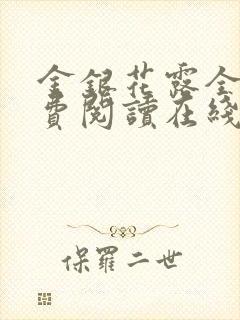 金銀花露全
費閱讀在綫
保羅二世